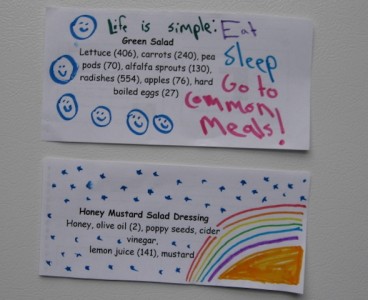 Life is simple: Eat
Sleep
Go to
common
Meals!
Green Salad
Lettuce (406), carrots (240), pea
pods (70), alfalfa sprouts (130),
radishes (554), apples (76), hard
boiled eggs (27)
Honey Mustard Salad Dressing
Honey, olive oil (2), poppy seeds, cider
vinegar,
lemon juice (141), mustard